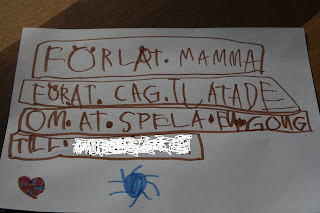 FÖRLÅT. MAMMA
FÖRAT. CAG. TLATADE
OM. AT. SPELA. EN. GOUG
TILL.